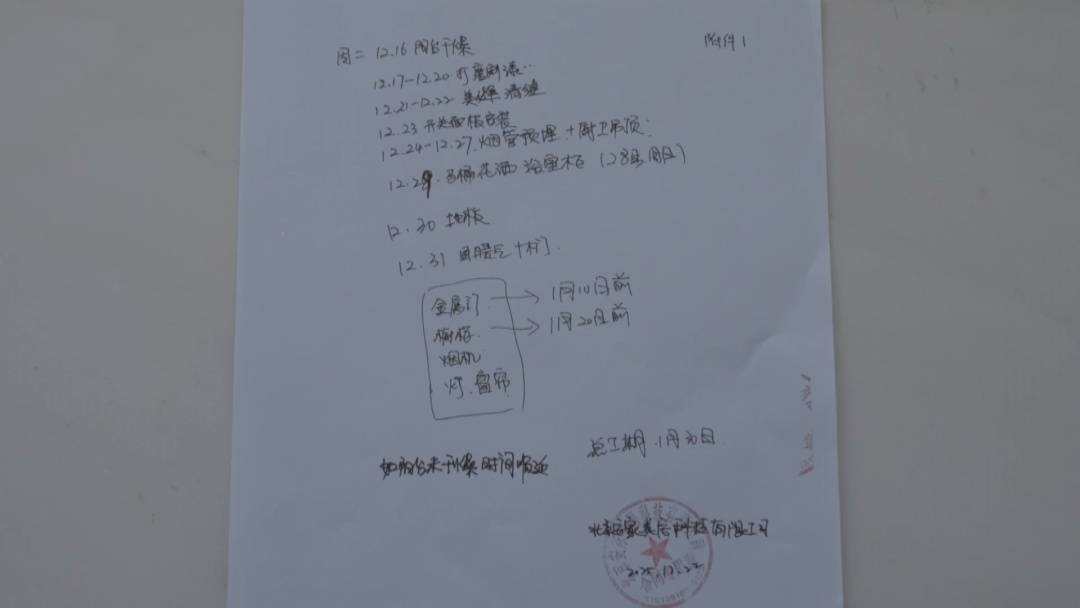 附件1
12.16 阳台干燥
12.17-12.20 打磨刷漆
12.21-12.22 美缝 清缝
12.23 开关面板安装
12.24-12.27 烟管预埋+厨卫吊顶
12.29 马桶花洒浴室柜(28
12.30 地板
12.31 十木门
金属门 → 1月10日前
橱柜 → 1月20日前
烟机
灯.窗帘
总工期 1月30日
如阳台未干燥时间顺延
科技有限公司
2025.12.22